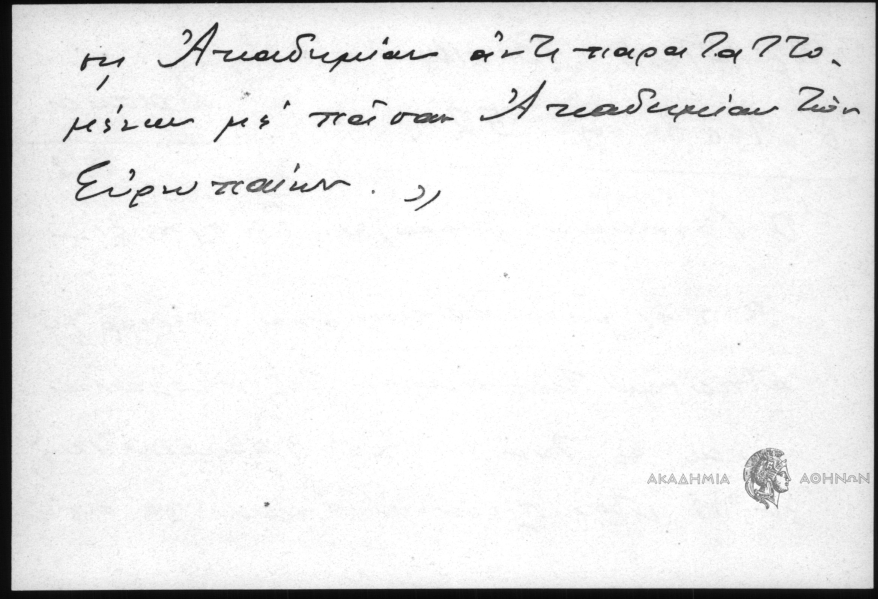 ση Ἀκαδημίαν ἀντιπαραταττο-
μένων μέ πᾶσαν Ἀκαδημίαν τῶν
Εὐρωπαίων. »
ΑΚΑΔΗΜΙΑ ΑΘΗΝΩΝ